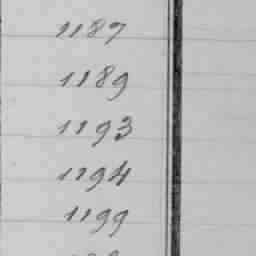 1187
1189
1193
1194
1199